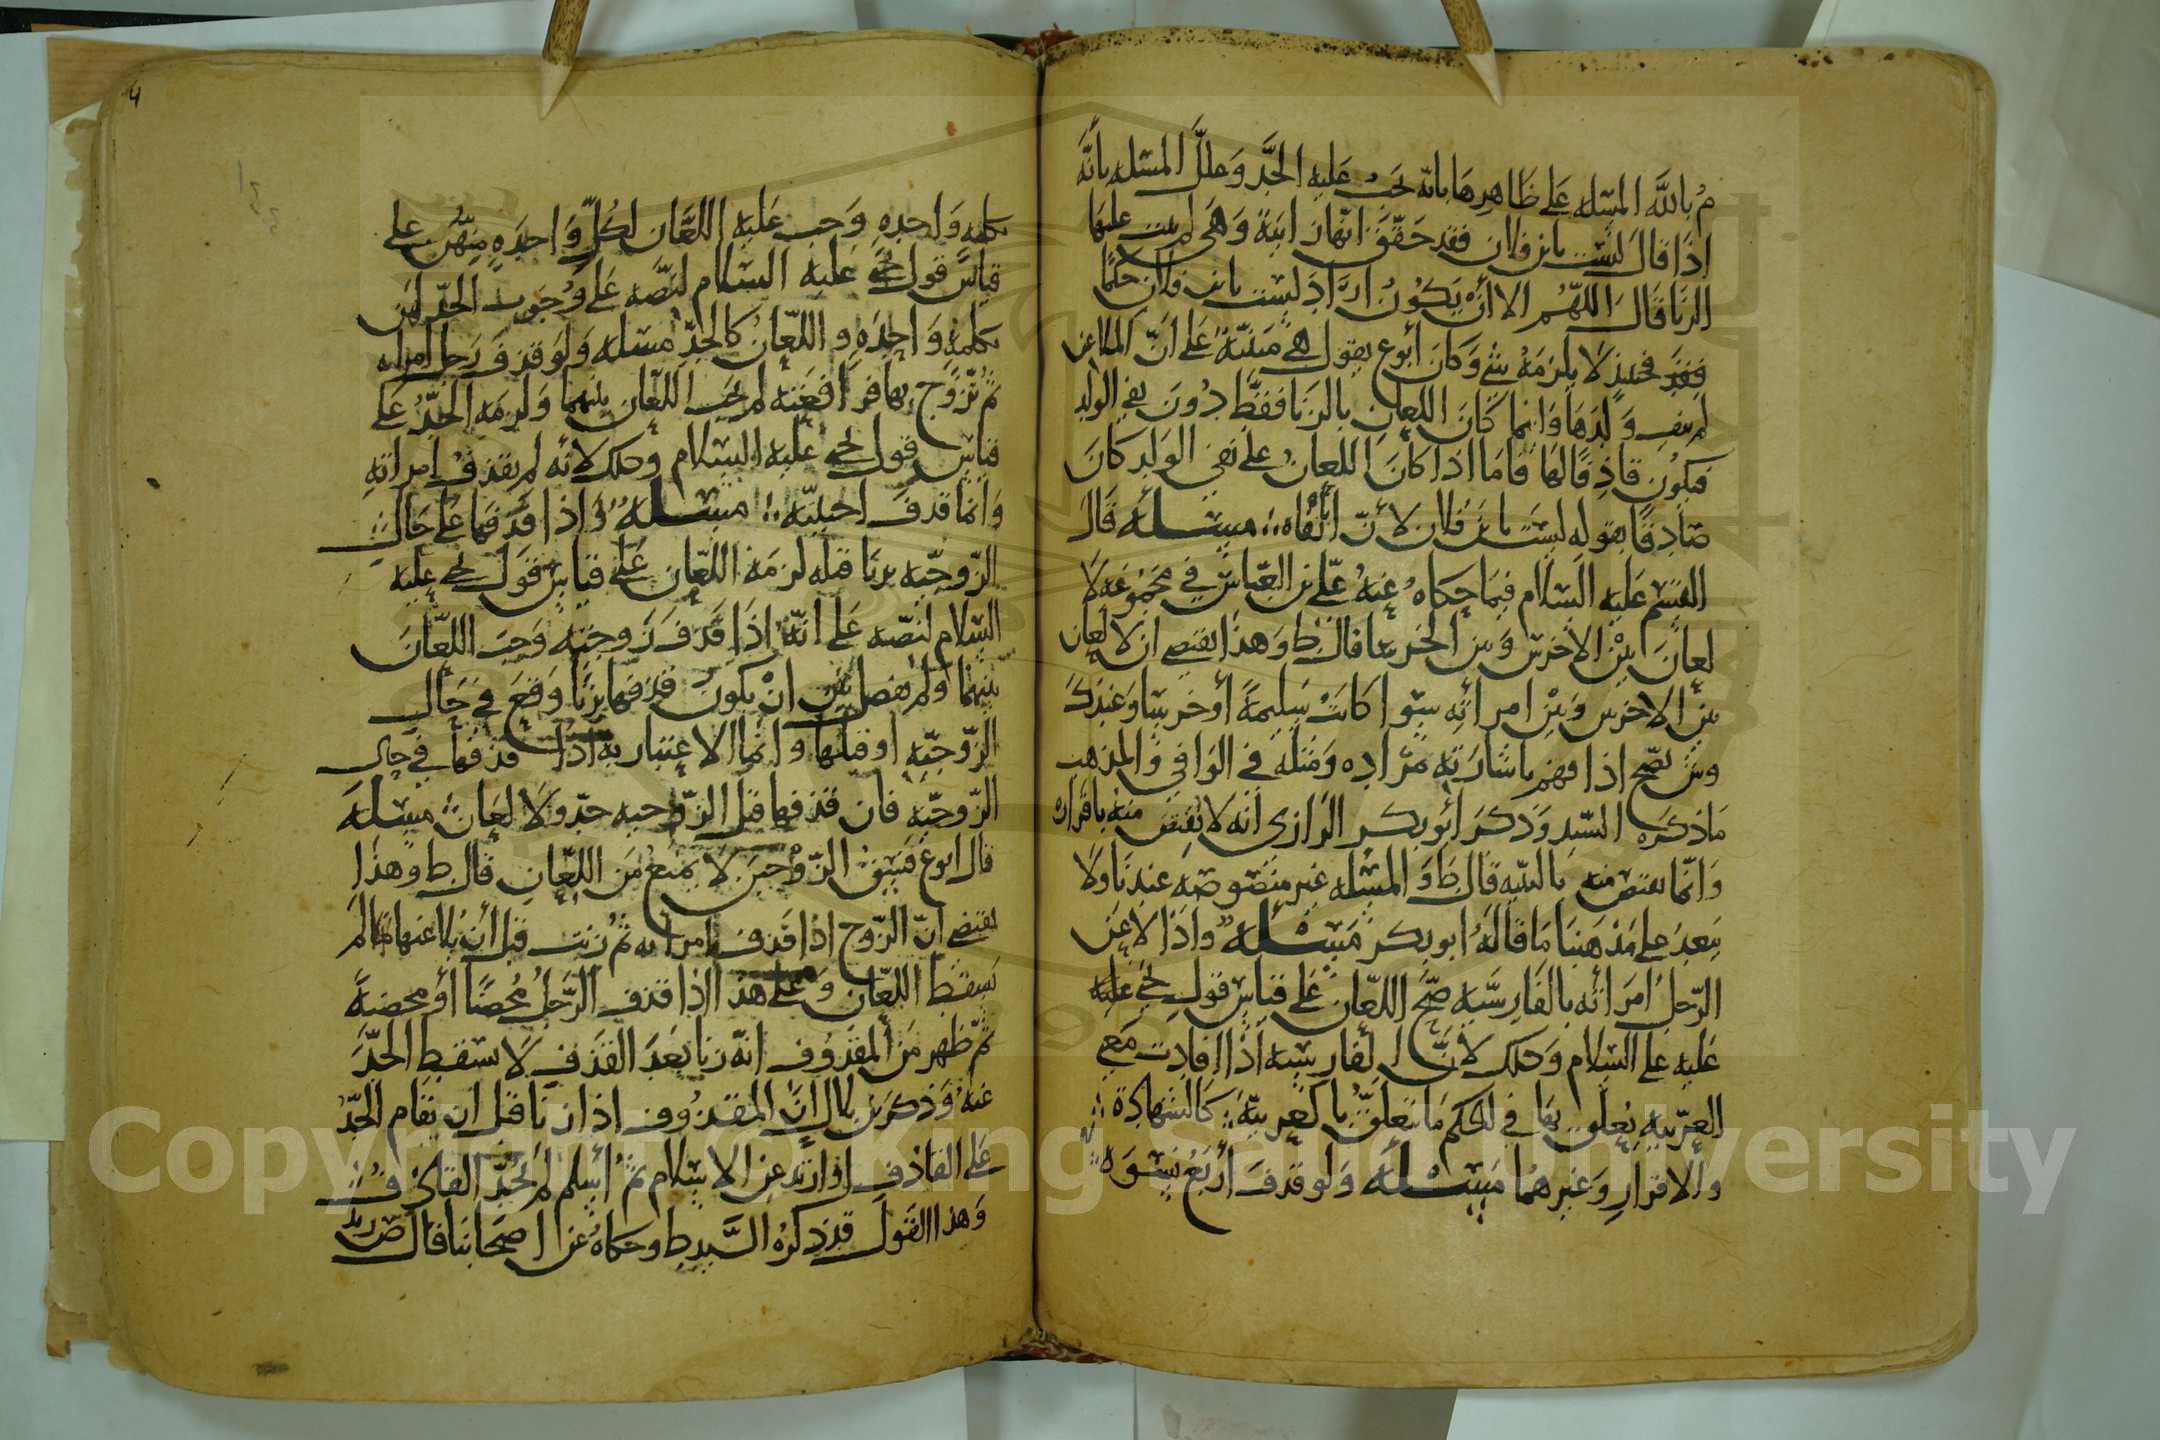 م بالله المسله على ظاهرها بانه يجب عليه الحد وعلل المسله بانه
اذا قال لست بابن فلان فقد حقق انها زانية وهي لم يثبت عليها
الزنا قال اللهم الا أن يكون اراد لست بابن فلان حكما
فحينئذ لا يلزمه شي وكان أبوع يقول هي مبنية على ان الملاعن
لم ينف ولدها وانما كان اللعان بالزنا فقط دون نفي الولد
فيكون قاذفا لها فاما اذا كان اللعان على نفي الولد كان
صادقا بقوله لست بابن فلان لأن أباه نفاه مسئله قال
القسم عليه السلام فيما حكاه عنه علي بن العباس في مجموعه لا
لعان بين الاخرس وبين الخرسا قال ط وهذا يقتضي ان لا لعان
بين الاخرس وبين امرأته سوا كانت سليمة أو خرسا وعند ك
وش يصح اذا فهم باشارته مراده ومثله في الوافي والمذهب
ماذكره السيد وذكر أبو بكر الرازي أنه لا يقتص منه باقراره
وانما يقتص منه بالبينه قال ط والمسله غير منصوصه عندنا ولا
يبعد على مذهبنا ما قاله ابو بكر مسئله واذا لاعن
الرجل امرأته بالفارسيه صح اللعان على قياس قول يحي عليه
عليه السلام وذلك لأن الفارسيه اذا افادت معنى
العربيه يعلق بها في الحكم ما يتعلق بالعربيه كالشهادة
والاقرار وغيرهما مسئله ولو قذف أربع نسوه
بكلمه واحده وجب عليه اللعان لكل واحده منهن على
قياس قول يحي عليه السلام لنصه على وجوب الحد لمن
بكلمة واحده واللعان كالحد مسله ولو قذف رجل امراه
ثم تزوج بها فرافعته لم يجب اللعان بينهما ولزمه الحد على
قياس قول يحي عليه السلام وذلك لانه لم يقذف امراته
وانما قذف اجنبيه مسئله واذا قذفها على حال
الزوجيه بزنا قبله لزمه اللعان على قياس قول يحي عليه
السلام لنصه على انه اذا قذف زوجته وجب اللعان
بينهما ولم يفصل بين ان يكون قذفها بزنا وقع في حال
الزوجيه او قبلها وانما الاعتبار به اذا قذفها في حال
الزوجيه فان قذفها قبل الزوجيه حد ولا لعان مسئله
قال ابوع فسق الزوجين لا يمنع من اللعان قال ط وهذا
يقتضي ان الزوج اذا قذف امراته ثم زنت قبل أن يلاعنها لم
يسقط اللعان وعلى هذا اذا قذف الرجل محصنا أو محصنة
ثم ظهر من المقذوف انه زنا بعد القذف لا يسقط الحد
عنه وذكر بن بلال ان المقذوف اذا زنا قبل ان يقام الحد
على القاذف او ارتد عن الاسلام ثم أسلم لم يحد القاذف
وهذا القول قد ذكره السيد ط وحكاه عن اصحابنا قال ض زيد
Copyright © King Saud University